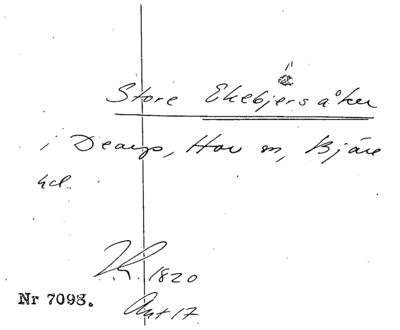 Store Ekebjersåker
i Dearp, Hov sn, Bjäre
hd.
1820
Nr 7093.
Akt 17